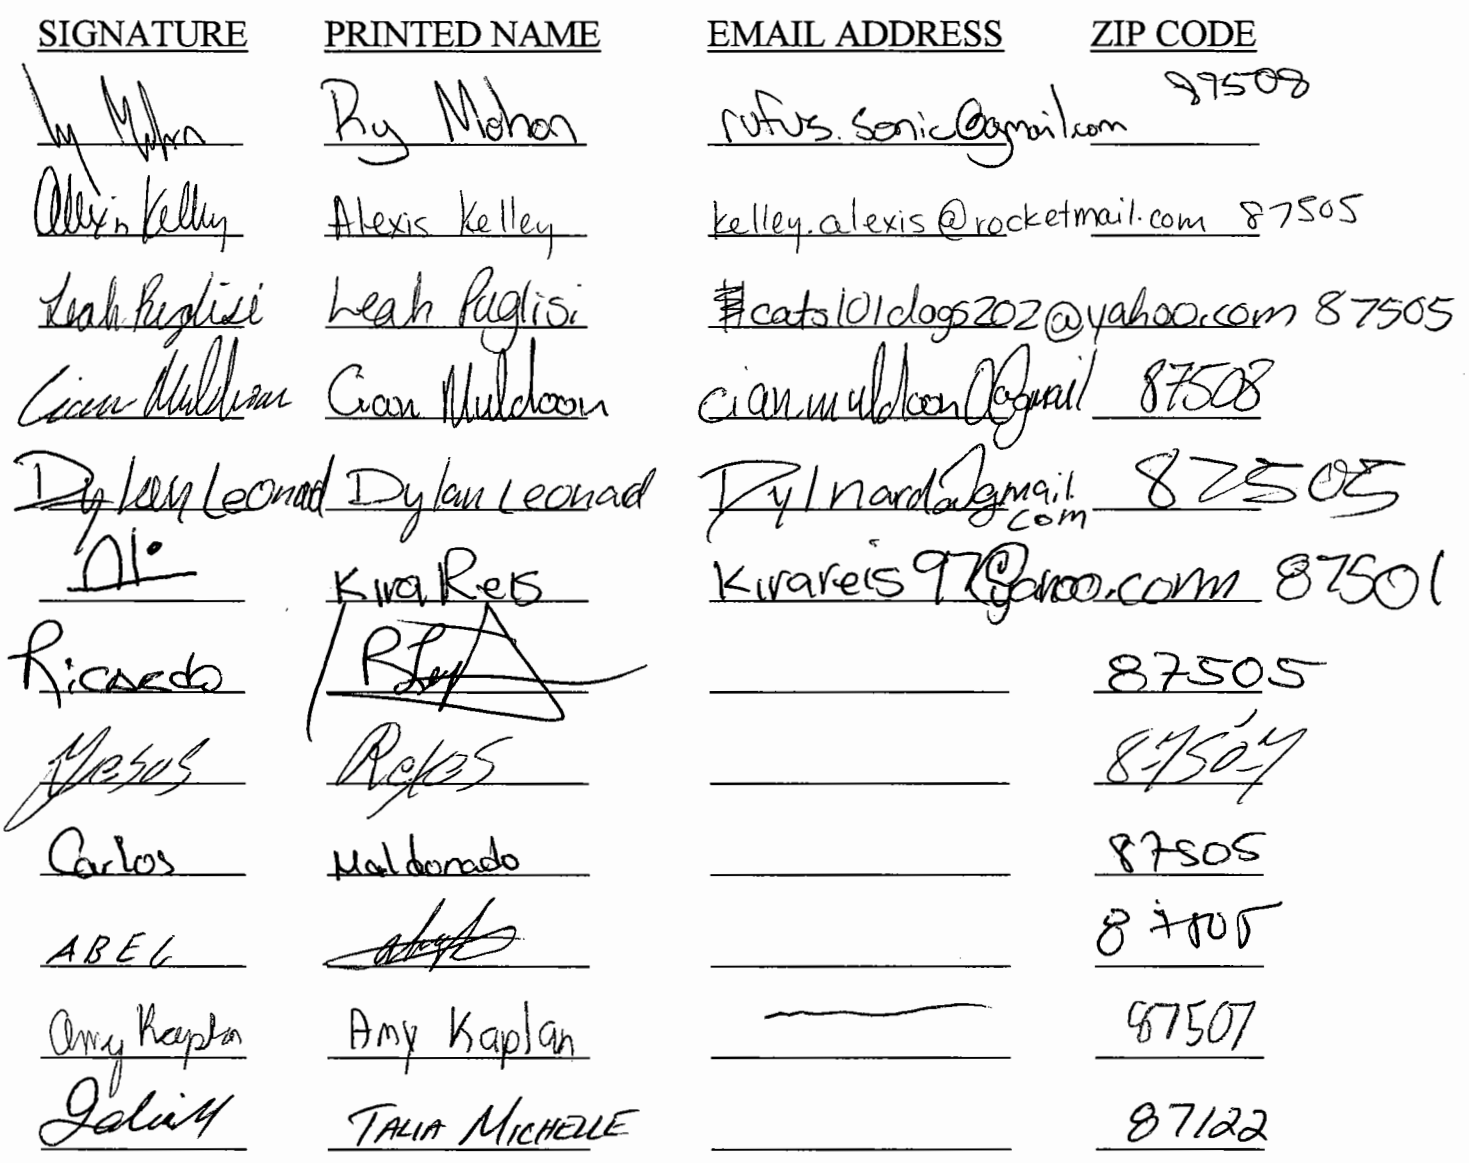 SIGNATURE PRINTED NAME EMAIL ADDRESS ZIP CODE
Ry Mohon rufus.sonic@gmail.com 87508
Alexis Kelley Alexis Kelley kelley.alexis@rocketmail.com 87505
Leah Puglisi Leah Puglisi cats101dogs202@yahoo.com 87505
Cian Muldoon Cian Muldoon cian.muldoon@gmail 87508
Dylan Leonad Dylan Leonad Dylnard@gmail.com 87505
Kira Reis kirareis97@yahoo.com 87501
Ricardo 87505
Yesus Reyes 87507
Carlos Maldonado 87505
ABEL 87505
Amy Kaplan Amy Kaplan 87507
Talia M TALIA MICHELLE 87122